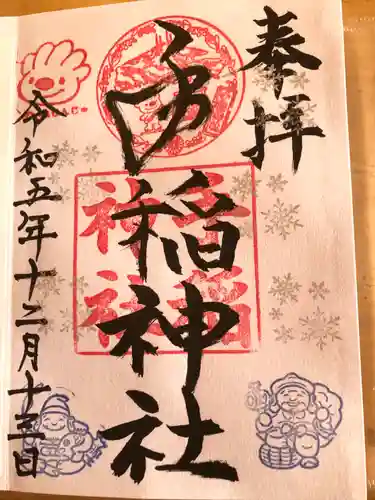 奉拝
手稲神社
令和五年十二月十三日